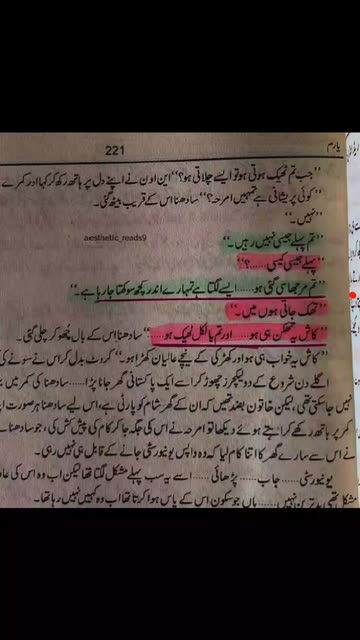 یارم
221
"جب تم ٹھیک ہوتی ہو تو ایسے چلاتی ہو؟" این اون نے اپنے دل پر ہاتھ رکھ کر کہا اور کمرے
"کوئی پریشانی ہے تمہیں امرحہ؟" سادھنا اس کے قریب بیٹھ گئی۔
"نہیں۔"
aesthetic_reads9
"تم پہلے جیسی نہیں رہیں۔"
"پہلے جیسی کیسی......؟"
"تم مرجھا سی گئی ہو...... ایسے لگتا ہے تمہارے اندر کچھ سوکھتا جا رہا ہے۔"
"تھک جاتی ہوں میں۔"
"کاش یہ تھکن ہی ہو...... اور تم بالکل ٹھیک ہو......" سادھنا اس کے بال چھو کر چلی گئی۔
"کاش یہ خواب ہی ہو اور کھڑکی کے نیچے عالیان کھڑا ہو۔" کروٹ بدل کر اس نے سونے کی
اگلے دن شروع کے دو لیکچرز چھوڑ کر اسے ایک پاکستانی گھر جانا پڑا...... سادھنا کی کمر میں
نہیں جا سکتی تھی، لیکن خاتون بضد تھیں کہ ان کے گھر شام کو پارٹی ہے، اس لیے سادھنا ہر صورت
کمر پر ہاتھ رکھے کراہتے ہوئے دیکھا تو امرحہ نے اس کی جگہ جا کر کام کی پیش کش کی، جو سادھنا
نے اس سے سارے گھر کا اتنا کام لیا کہ وہ واپس یونیورسٹی جانے کے قابل ہی نہیں رہی۔
یونیورسٹی...... جاب...... پڑھائی...... اسے یہ سب پہلے مشکل لگتا تھا لیکن اب وہ اس کی
مشکل تھی بدترین نہیں...... ہاں جو سکون اس کے پاس ہوا کرتا تھا اب وہ کہیں نہیں رہا تھا۔